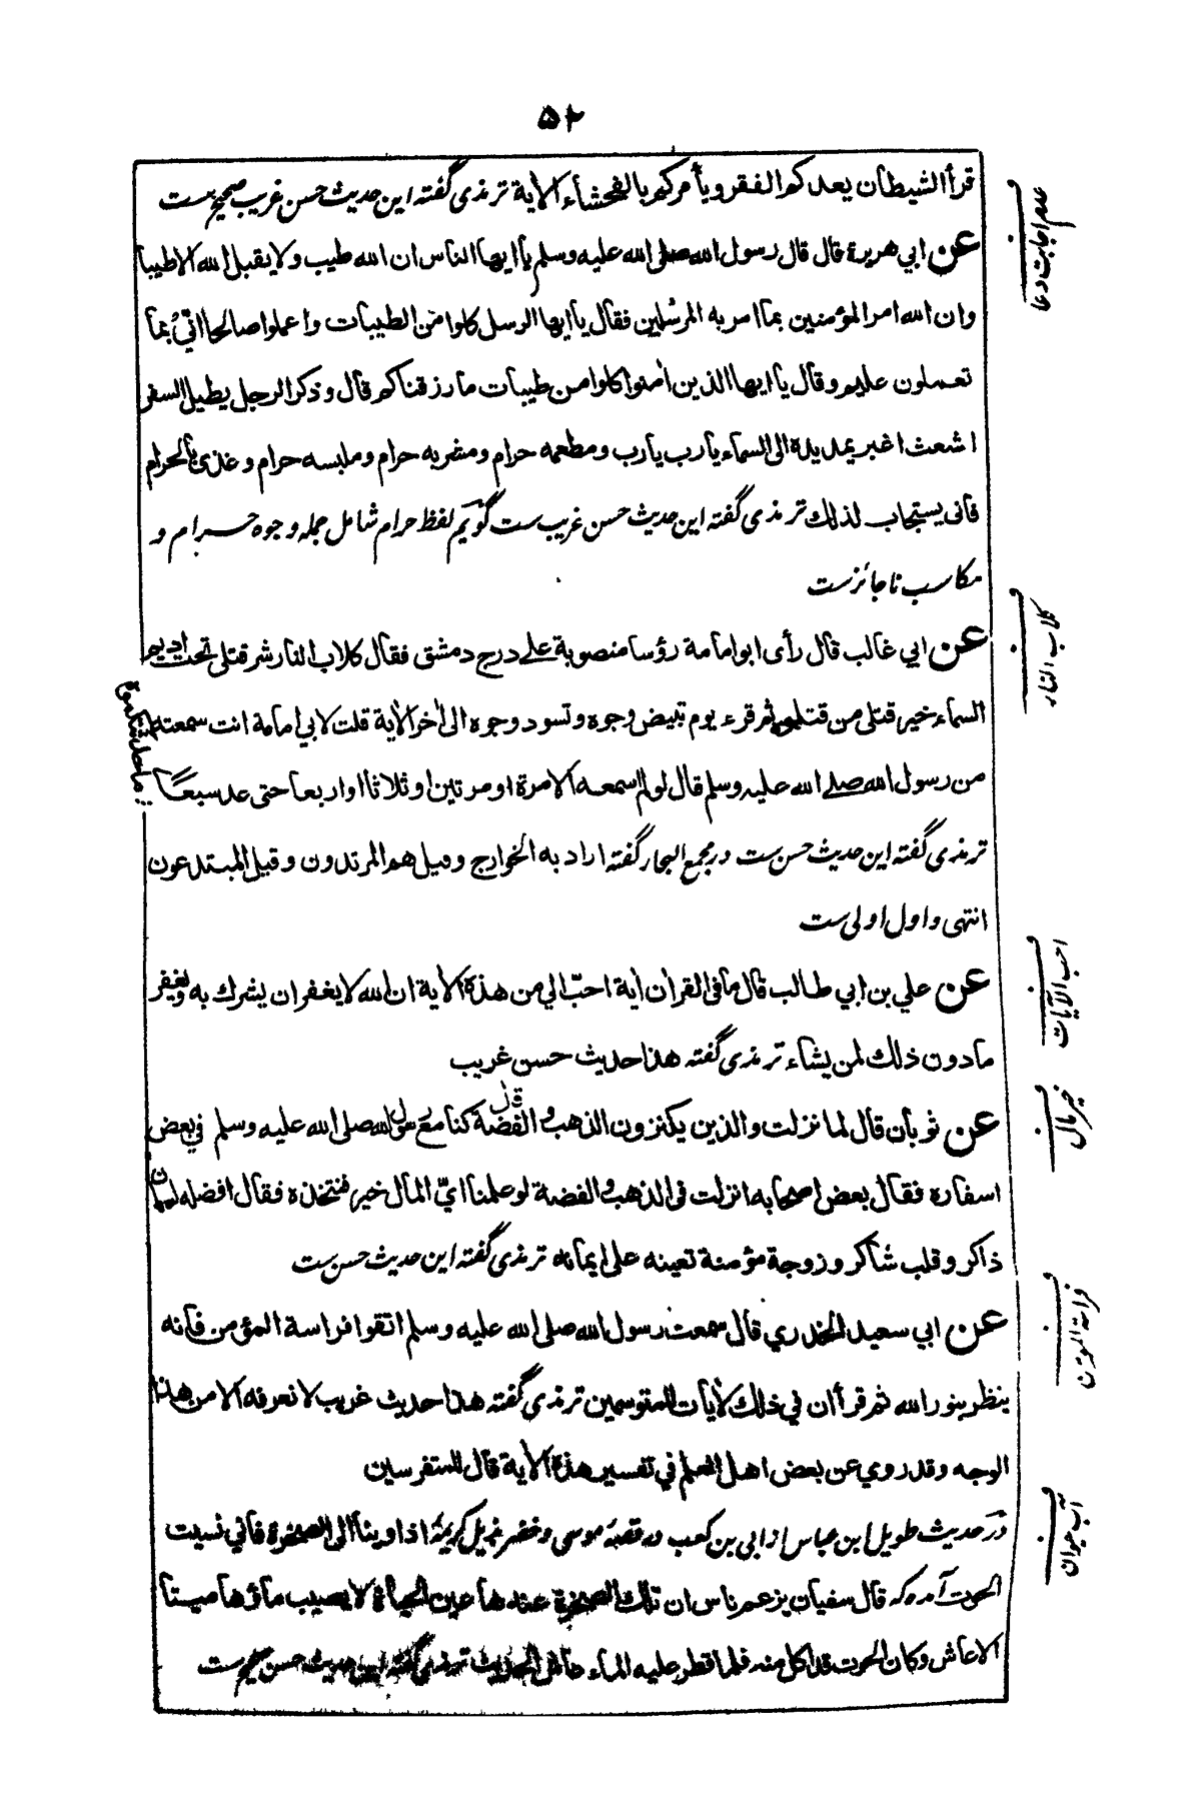 ۵۲
قرأ الشيطان يعدكم الفقر ويأمركم بالفحشاء الآية ترمذی گفته این حدیث حسن غریب صحیح ست
عدم اجابت دعا
عن ابي هريرة قال قال رسول الله صلى الله عليه وسلم يا ايها الناس ان الله طيب ولا يقبل الله الا طيبا
وان الله امر المؤمنين بما امر به المرسلين فقال يا ايها الرسل كلوا من الطيبات واعملوا صالحا اني بما
تعملون عليم وقال يا ايها الذين اٰمنوا كلوا من طيبات ما رزقناكم قال وذكر الرجل يطيل السفر
اشعث اغبر يمد يده الى السماء يارب يارب ومطعمه حرام ومشربه حرام وملبسه حرام وغذي بالحرام
فانى يستجاب لذلك ترمذی گفته این حدیث حسن غریب ست گویم لفظ حرام شامل جمله وجوه حرام و
مکاسب ناجائزست
كلاب النار
عن ابي غالب قال رأى ابو امامة رؤسا منصوبة على درج دمشق فقال كلاب النار شر قتلى تحت اديم
السماء خير قتلى من قتلوه ثم قرء يوم تبيض وجوه وتسود وجوه الى اٰخر الاٰية قلت لابي امامة انت سمعته
من رسول الله صلى الله عليه وسلم قال لو لم اسمعه الا مرة او مرتين او ثلاثا او اربعا حتى عد سبعًا
ما حدثتكموه
ترمذی گفته این حدیث حسن ست ودر مجمع البحار گفته اراد به الخوارج وقيل هم المرتدون وقيل المبتدعون
انتهى واول اولی ست
احب الآيات
عن علي بن ابي طالب قال ما فى القراٰن اٰية احبّ الي من هذه الآية ان الله لا يغفر ان يشرك به ويغفر
ما دون ذلك لمن يشاء ترمذی گفته هذا حديث حسن غريب
خير مال
عن ثوبان قال لما نزلت والذين يكنزون الذهب والفضة قال كنا مع رسول الله صلى الله عليه وسلم في بعض
اسفاره فقال بعض اصحابه انزلت فى الذهب والفضة لو علمنا ايّ المال خير فنتخذه فقال افضله لسان
ذاكر وقلب شاكر وزوجة مؤمنة تعينه على ايمانه ترمذی گفته این حدیث حسن ست
فراسة المؤمن
عن ابي سعيد الخدري قال سمعت رسول الله صلى الله عليه وسلم اتقوا فراسة المؤمن فانه
ينظر بنور الله ثم قرأ ان في ذلك لاٰيات للمتوسمين ترمذی گفته هذا حديث غريب لا نعرفه الا من هذا
الوجه وقد روي عن بعض اهل العلم في تفسير هذه الآية قال للمتفرسين
آب حيوان
در حدیث طویل ابن عباس از ابی بن کعب در قصهٔ موسی وخضر بذیل کریمهٔ اذ اوينا الى الصخرة فاني نسيت
الحوت آمده که قال سفيان يزعم ناس ان تلك الصخرة عندها عين الحياة لا يصيب ماؤها ميتا
الا عاش وكان الحوت قد اكل منه فلما قطر عليه الماء عاش الحديث ترمذی گفته این حدیث حسن صحیح ست